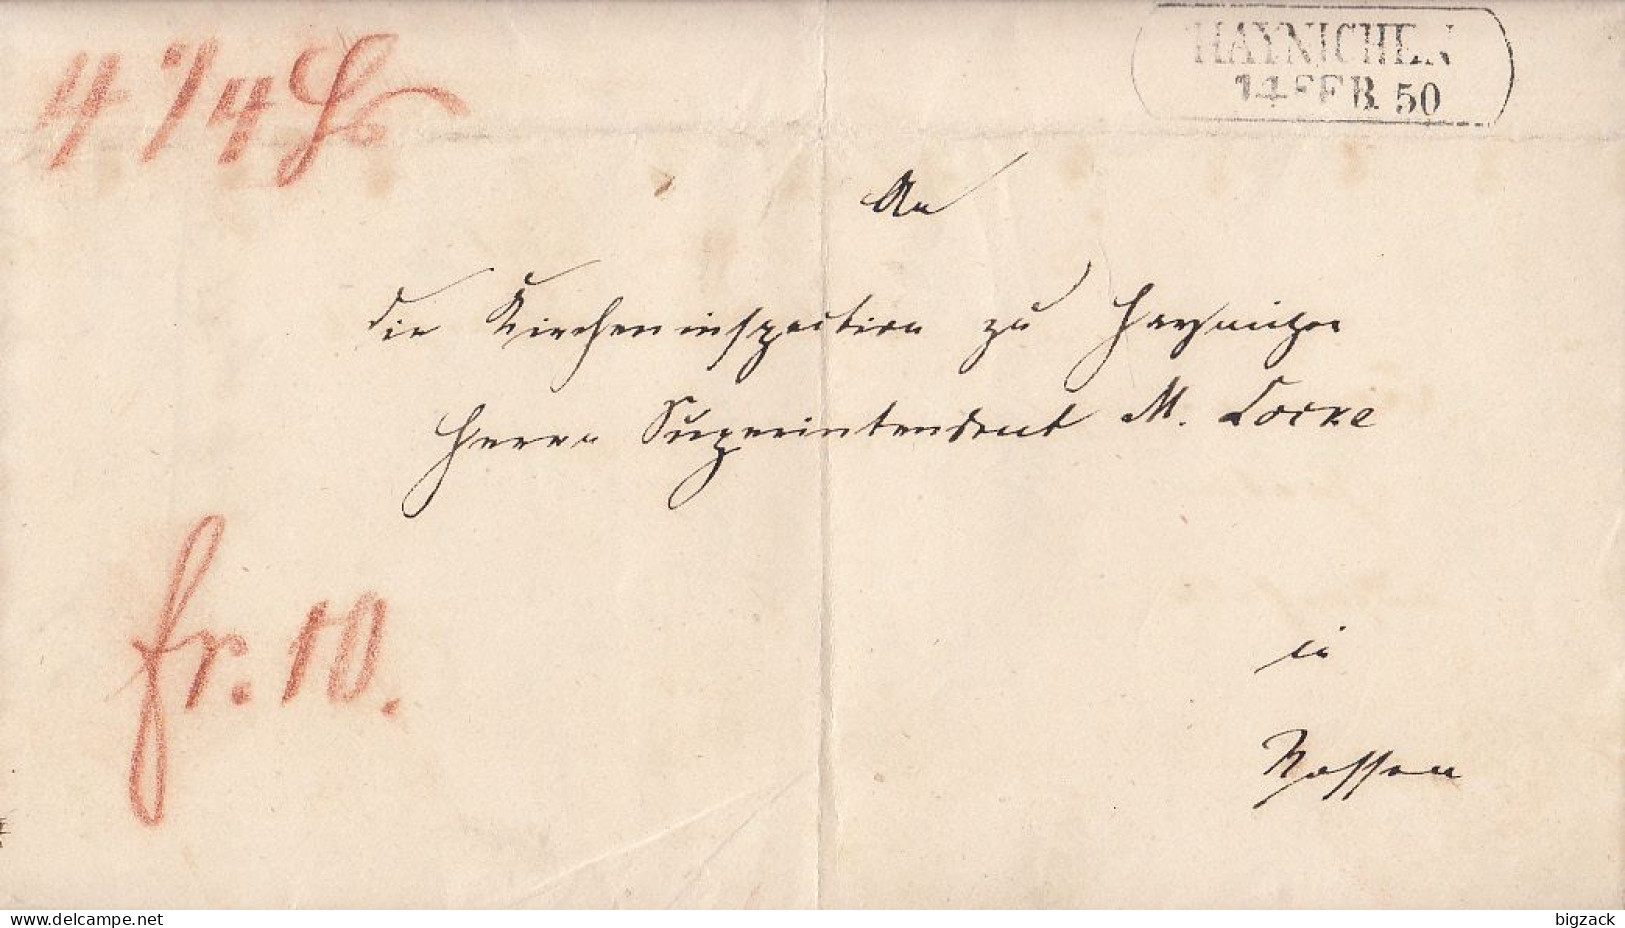 4 1/4
HAYNICHEN
14 FEB 50
An
die Kircheninspection zu Haynichen
Herrn Superintendent M. Locke
fr. 10.
in
Nossen
www.delcampe.net
bigzack